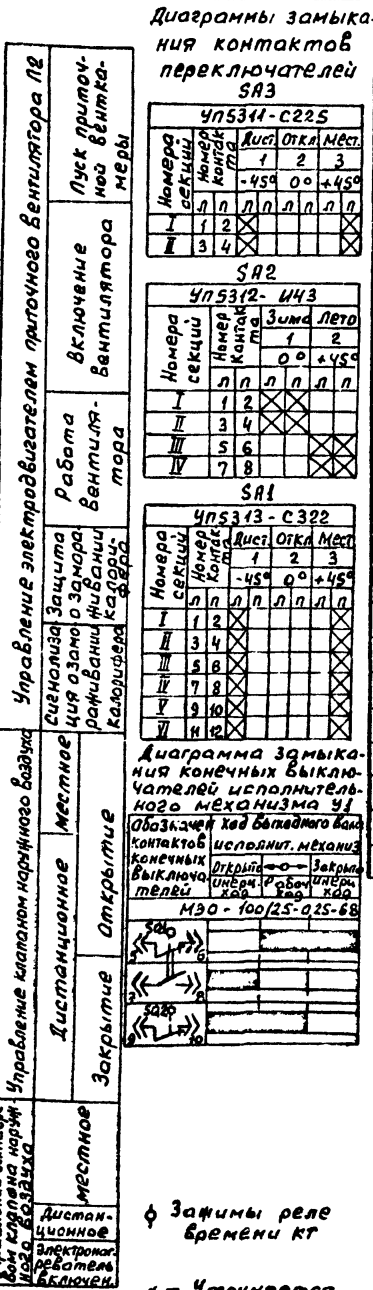 Диаграммы замыка-
ния контактов
переключателей
SA3
УП5311-С225
Номера секций
Номер контакта
Дист. Откл. Мест.
1 2 3
-45° 0° +45°
л п л п л п л п
I 1 2
II 3 4
SA2
УП5312- И43
Номера секций
Номер контакта
Зима Лето
1 2
0° +45°
л п л п л п
I 1 2
II 3 4
III 5 6
IV 7 8
SA1
УП5313-С322
Номера секций
Номер контакта
Дист. Откл. Мест.
1 2 3
-45° 0° +45°
л п л п л п л п
I 1 2
II 3 4
III 5 6
IV 7 8
V 9 10
VI 11 12
Диаграмма замыка-
ния конечных выклю-
чателей исполнитель-
ного механизма У1
Обозначен контактов конечных выключателей
Ход выходного вала
исполнит. механиз
Открыто Закрыто
инерц. ход Рабоч ход инерц ход
МЭО-100/25-0,25-68
SQ1
5 6
7 8
SQ2
9 10
ϕ Зажимы реле
времени КТ
Управление электродвигателем приточного вентилятора П2
Пуск приточ-
ной вентка-
меры
Включение
вентилятора
Работа
вентиля-
тора
Защита
о замора-
живании
калори-
фера
Сигнализа
ция о замо
раживании
калорифера
Управление клапаном наружного воздуха
Местное
Дистанционное
Открытие
Закрытие
вом клапана наруж
ного воздуха
местное
Дистан-
ционное
Электронаг-
реватель
включен.